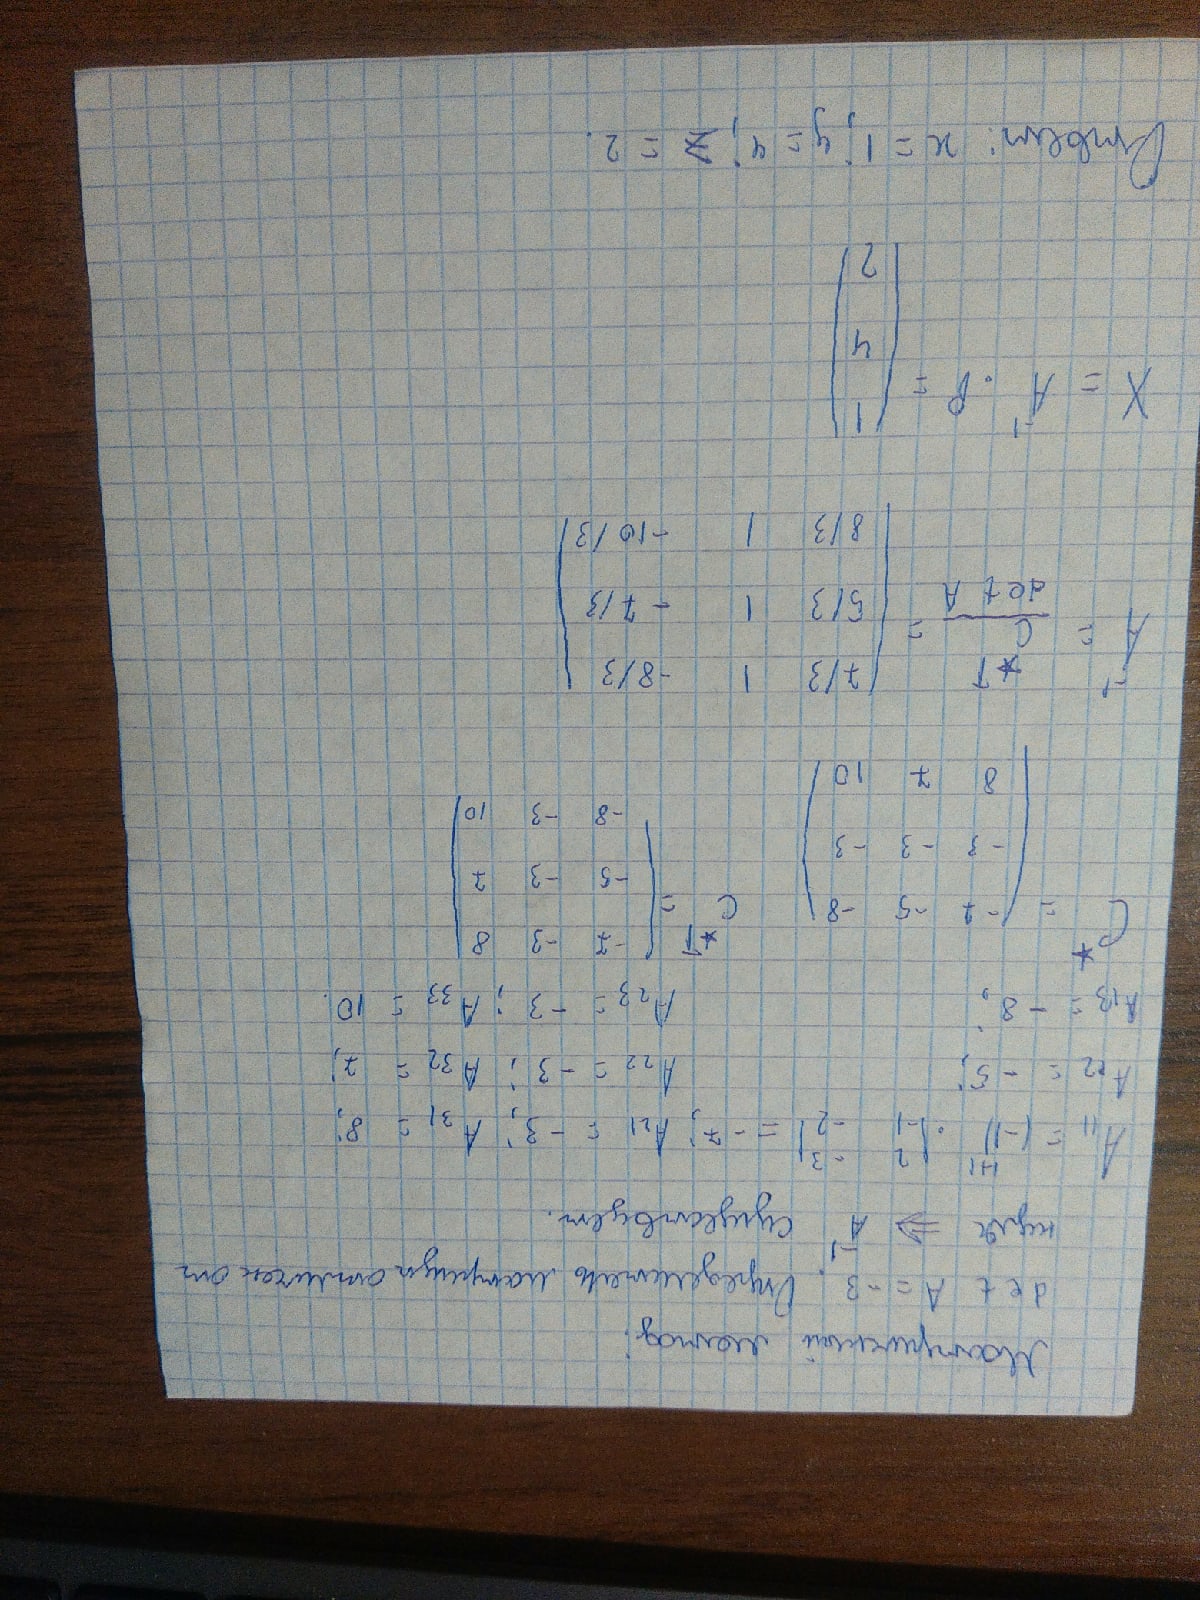 Матричный метод:
det A = -3. Определитель матрицы отличен от
нуля ⇒ A⁻¹ существует.
A₁₁ = (-1)¹⁺¹ · |2 -3| = -7; A₂₁ = -3; A₃₁ = 8;
|-1 -2|
A₁₂ = -5; A₂₂ = -3; A₃₂ = 7;
A₁₃ = -8; A₂₃ = -3; A₃₃ = 10.
C* = C*ᵀ =
(-7 -5 -8) (-7 -3 8)
(-3 -3 -3) (-5 -3 7)
(8 7 10) (-8 -3 10)
A⁻¹ = C*ᵀ / det A =
(7/3 1 -8/3)
(5/3 1 -7/3)
(8/3 1 -10/3)
X = A⁻¹ · P =
(1)
(4)
(2)
Ответ: x = 1; y = 4; z = 2.